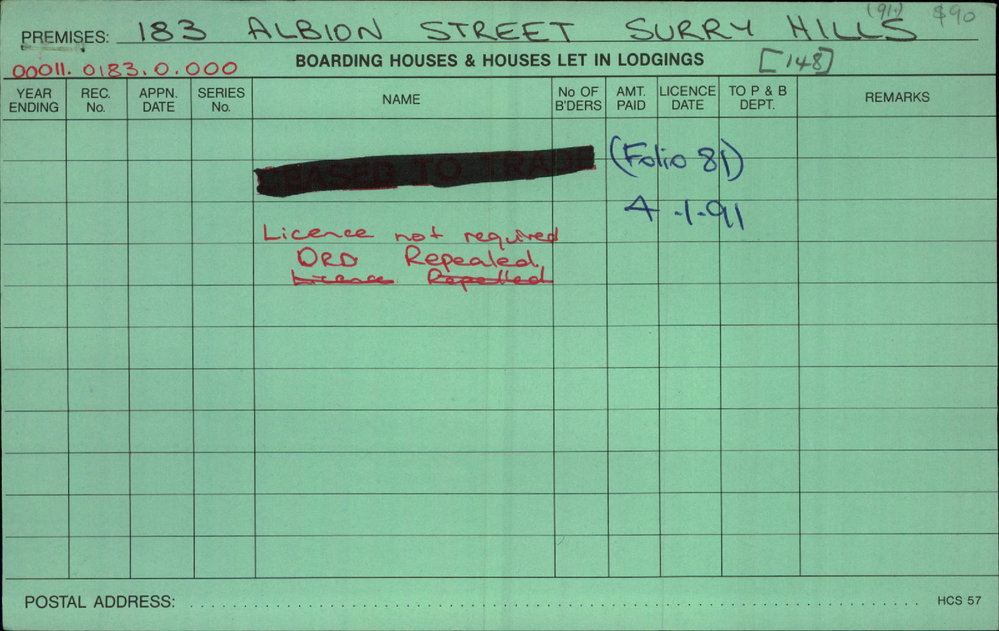 (911) $90
PREMISES: 183 ALBION STREET SURRY HILLS
00011.0183.0.000 BOARDING HOUSES & HOUSES LET IN LODGINGS [148]
YEAR ENDING REC. No. APPN. DATE SERIES No. NAME No OF B'DERS AMT. PAID LICENCE DATE TO P & B DEPT. REMARKS
CEASED TO TRADE (Folio 81)
4.1.91
Licence not required
ORD Repealed.
Licence Repelled
POSTAL ADDRESS: HCS 57